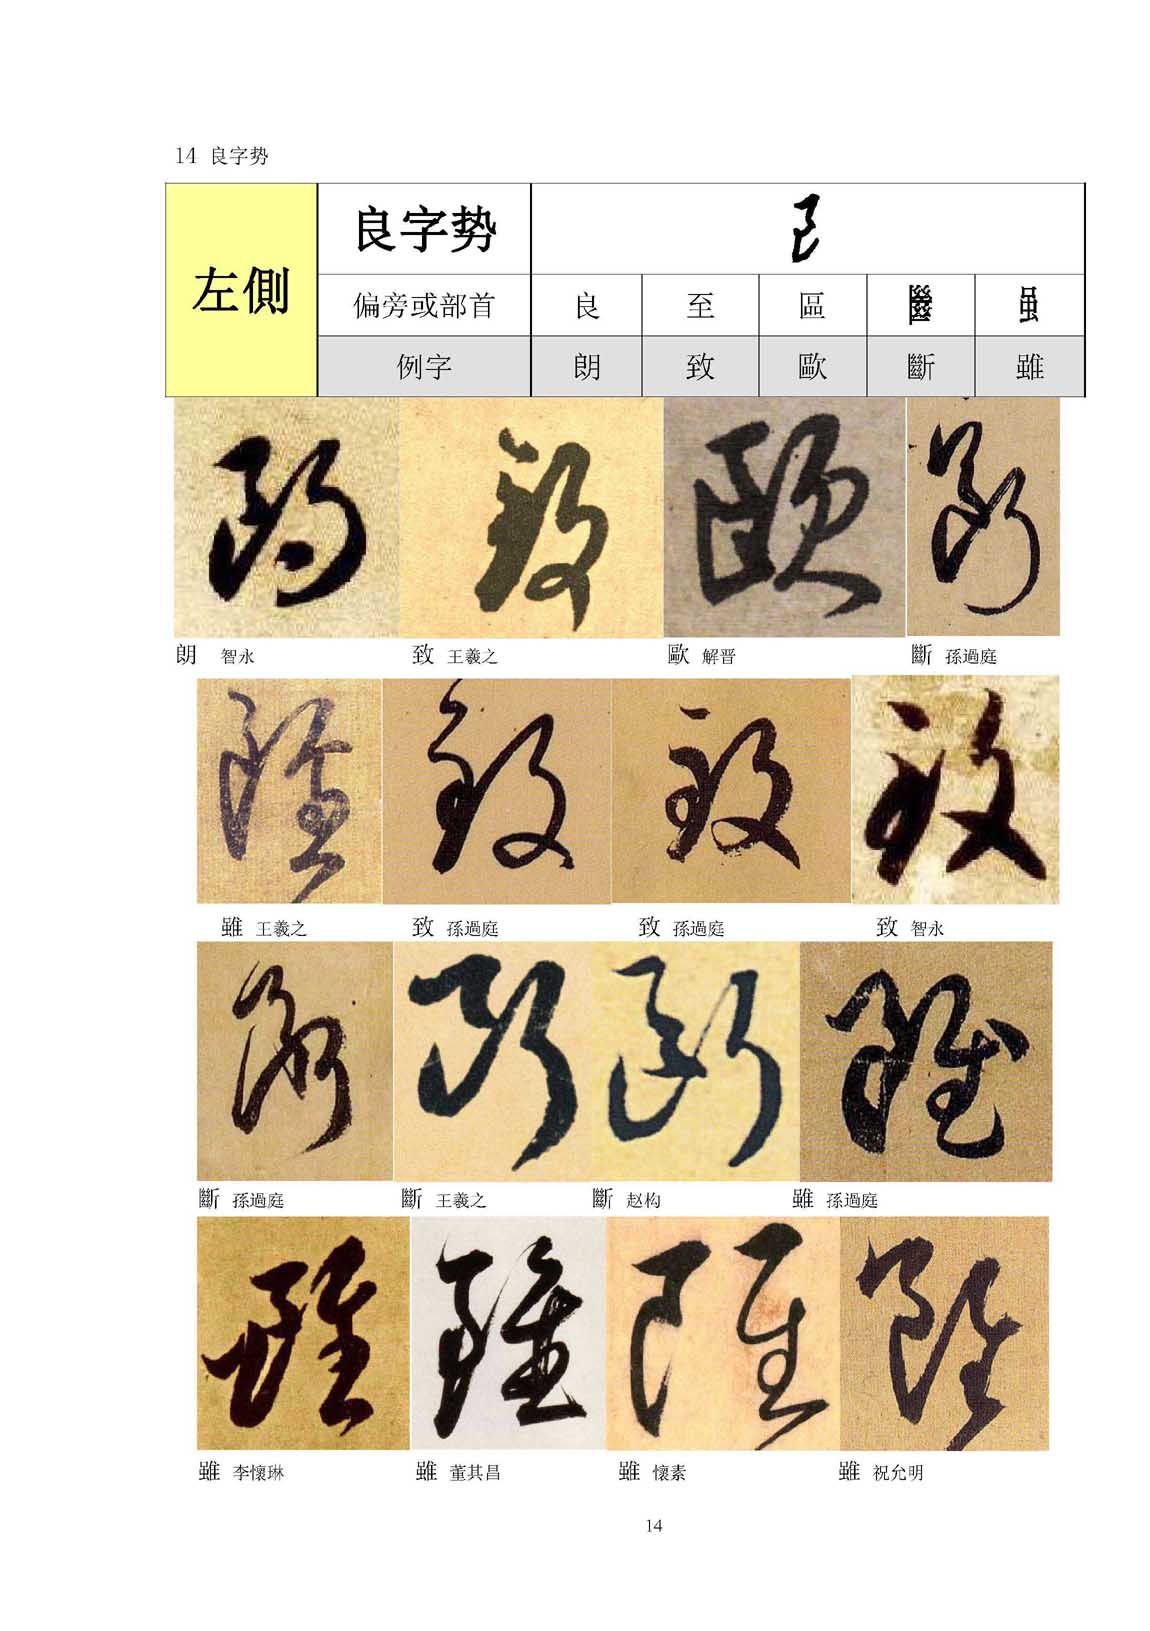 14 良字势
左側
良字势
偏旁或部首 良 至 區 𢇍 虽
例字 朗 致 歐 斷 雖
朗 致 歐 斷
朗 智永 致 王羲之 歐 解晋 斷 孫過庭
雖 致 致 致
雖 王羲之 致 孫過庭 致 孫過庭 致 智永
斷 斷 斷 雖
斷 孫過庭 斷 王羲之 斷 赵构 雖 孫過庭
雖 雖 雖 雖
雖 李懷琳 雖 董其昌 雖 懷素 雖 祝允明
14